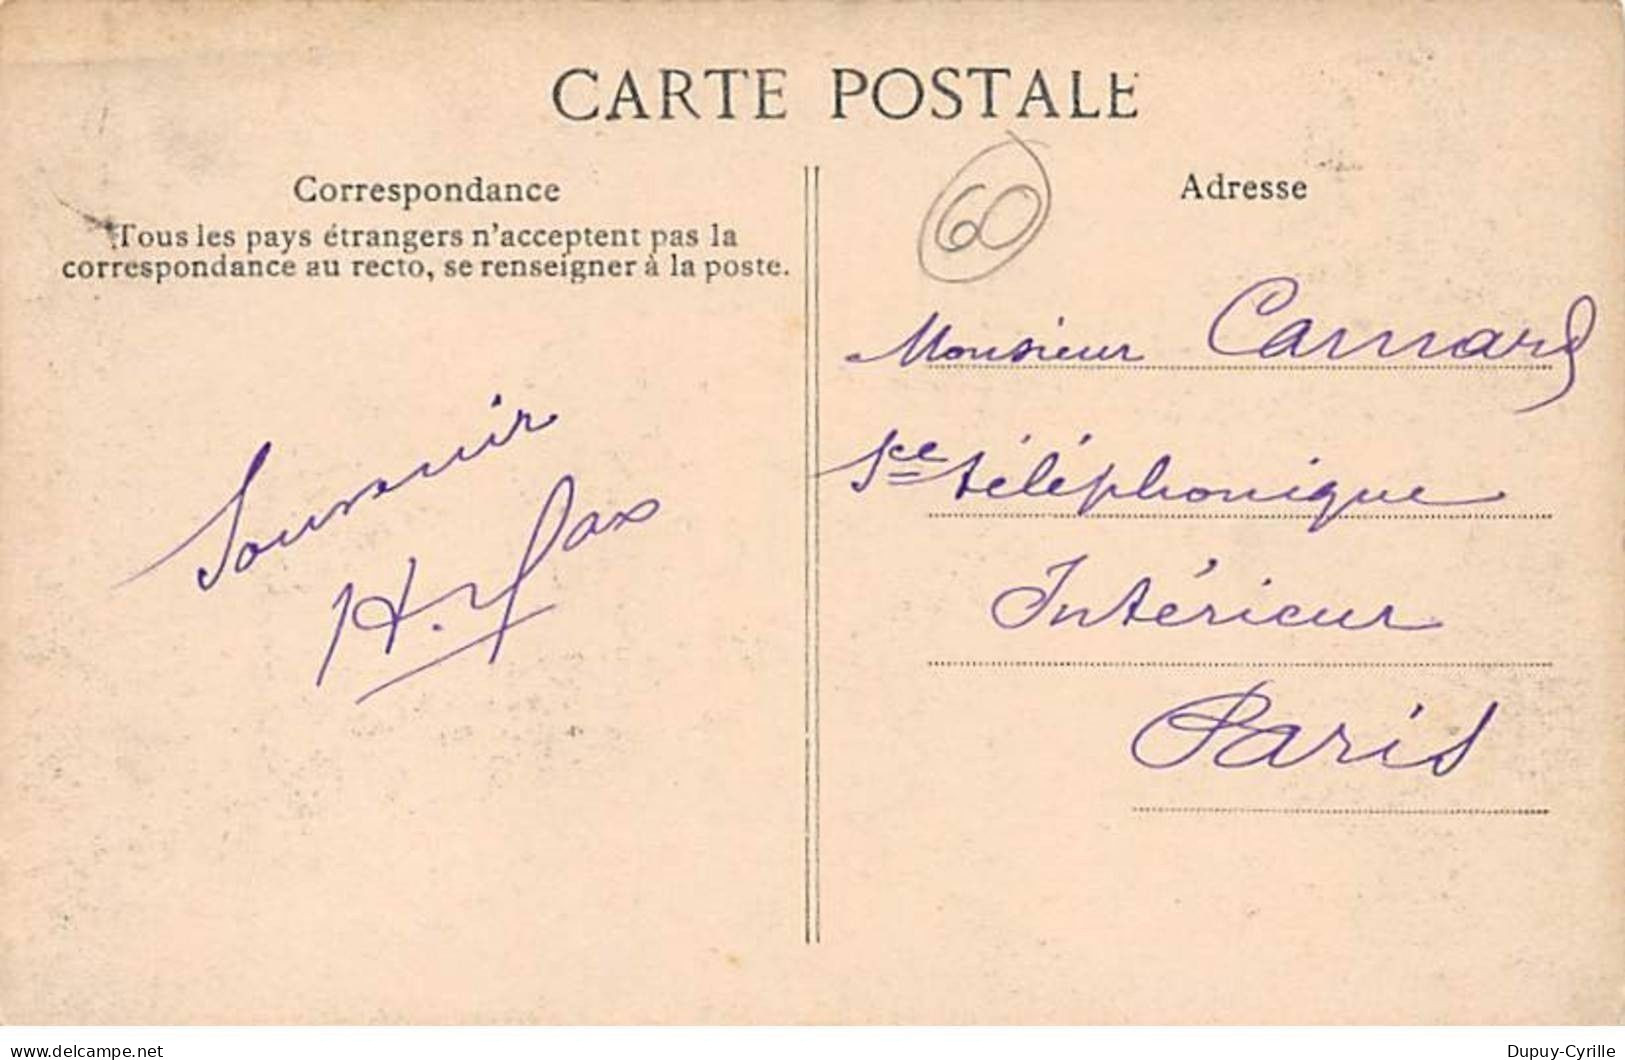 CARTE POSTALE
Correspondance
Tous les pays étrangers n'acceptent pas la
correspondance au recto, se renseigner à la poste.
Souvenir
H.
60
Adresse
Monsieur
Sce téléphonique
Intérieur
Paris
delcampe.net
Dupuy-Cyrille